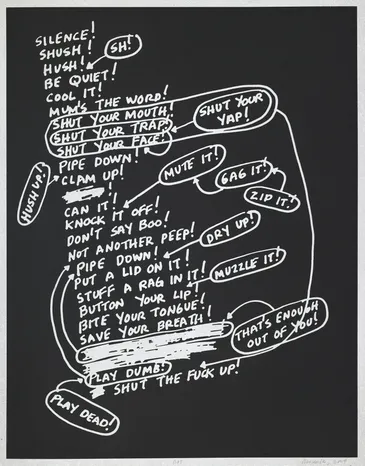 SILENCE!
SHUSH!
HUSH!
SH!
BE QUIET!
COOL IT!
MUM'S THE WORD!
SHUT YOUR MOUTH!
SHUT YOUR TRAP!
SHUT YOUR FACE!
SHUT YOUR
YAP!
PIPE DOWN!
CLAM UP!
HUSH UP!
MUTE IT!
GAG IT!
ZIP IT!
CAN IT!
KNOCK IT OFF!
DON'T SAY BOO!
NOT ANOTHER PEEP!
DRY UP!
PIPE DOWN!
PUT A LID ON IT!
STUFF A RAG IN IT!
MUZZLE IT!
BUTTON YOUR LIP!
BITE YOUR TONGUE!
SAVE YOUR BREATH!
THAT'S ENOUGH
OUT OF YOU!
PLAY DUMB!
SHUT THE FUCK UP!
PLAY DEAD!